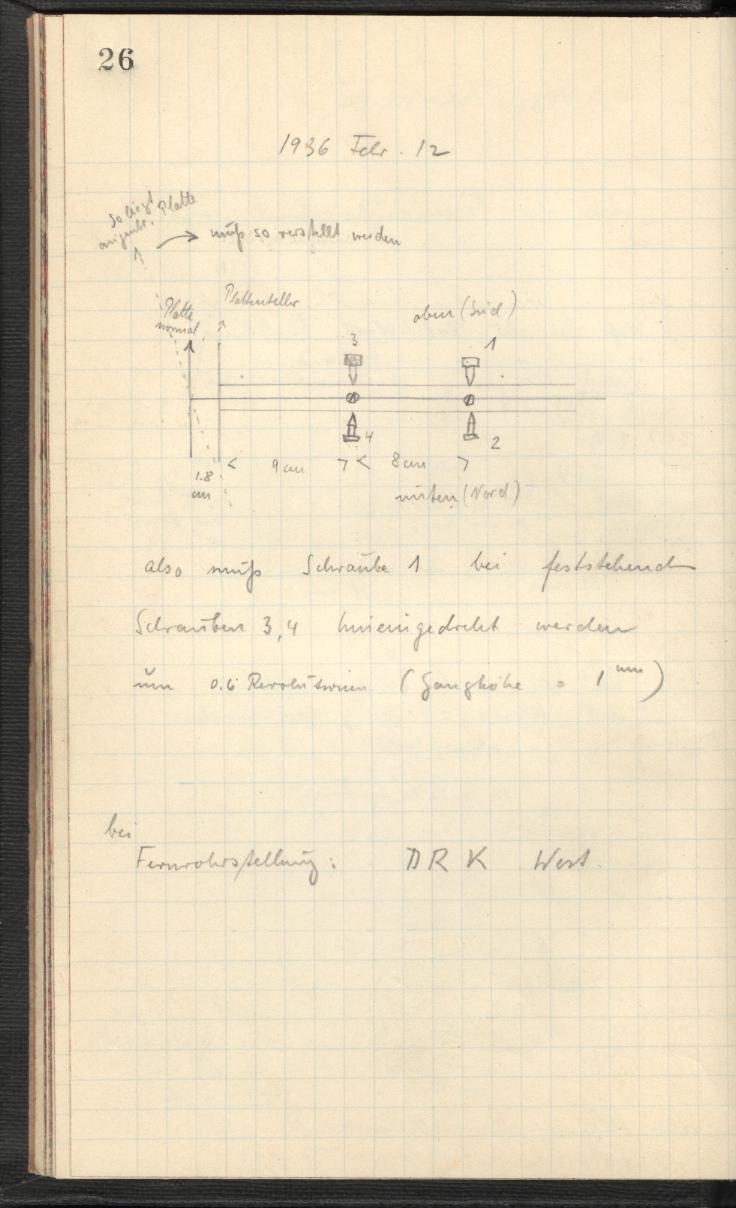 26
1936 Febr. 12
So liegt Platte
augenbl.
muß so verstellt werden
Platte
normal
Plattenteller
oben (Süd)
3
1
4
2
1.8
cm
9 cm
8 cm
unten (Nord)
also muß Schraube 1 bei feststehend
Schrauben 3,4 hineingedreht werden
um 0.6 Revolutionen (Ganghöhe = 1 mm)
bei
Fernrohrstellung: DRK West.